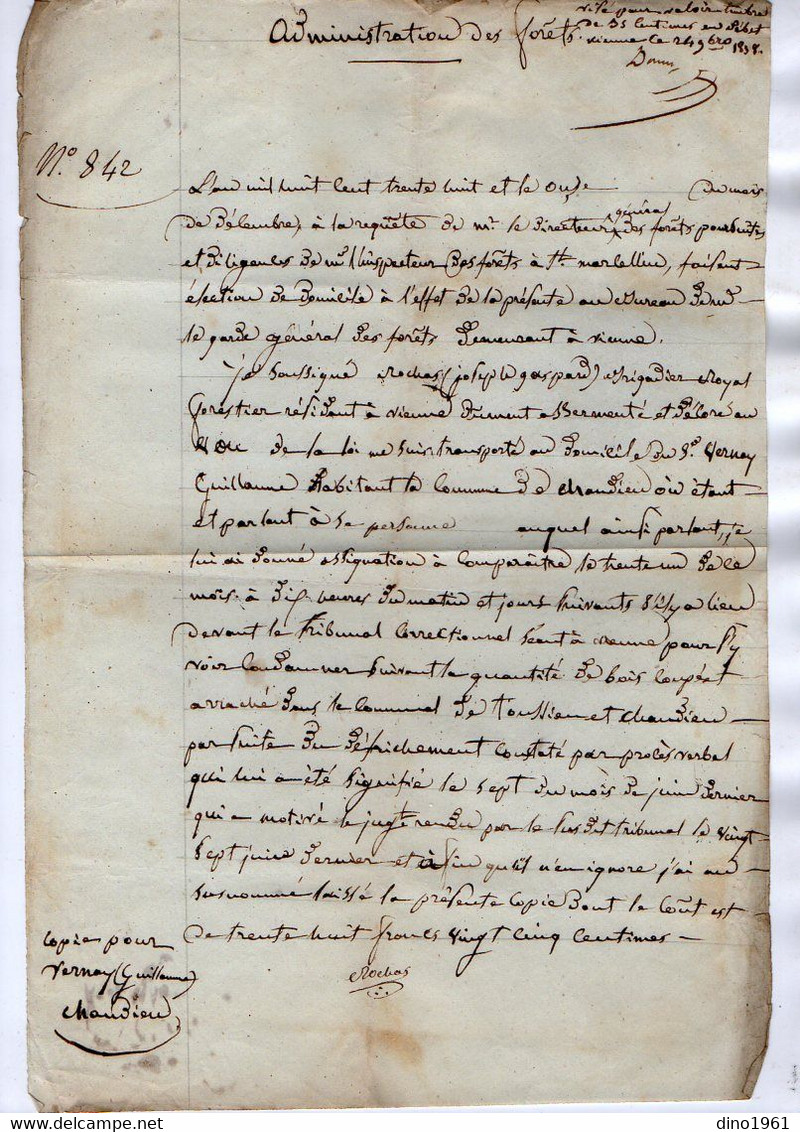 visé pour valoir timbre
de 35 centimes en débet
vienne le 24 9bre 1838.
Administration des forêts.
N.o 842
L'an mil huit cent trente huit et le onze du mois
de Décembre, à la requête de mr. le Directeur général des forêts poursuites
et diligences de mr l'inspecteur des forêts à St. marcellin, faisant
élection de domicile à l'effet de la présente au Bureau de mr
le garde général des forêts demeurant à vienne.
Je soussigné Rochas (joseph gaspard) Brigadier Royal
forestier résidant à vienne dument assermenté et décoré au
vœu de la loi me suis transporté au domicile du S.r Vernay
Guillaume habitant la commune de chandieu où étant
et parlant à sa personne auquel ainsi parlant, je
lui ai donné assignation à comparaître le trente un de ce
mois à dix heures du matin et jours suivants s'il y a lieu
devant le tribunal correctionnel séant à vienne pour s'y
voir condamner suivant la quantité de bois coupé et
arraché dans le communal de toussieu et chandieu
par suite du défrichement constaté par procès verbal
qui lui a été signifié le sept du mois de juin dernier
qui a motivé le jugt rendu par le susdit tribunal le vingt
sept juin dernier et afin qu'il n'en ignore j'ai au
susnommé laissé la présente copie Dont le coût est
de trente huit francs vingt cinq centimes
Rochas
copie pour
Vernay (Guillaume)
chandieu
dino1961